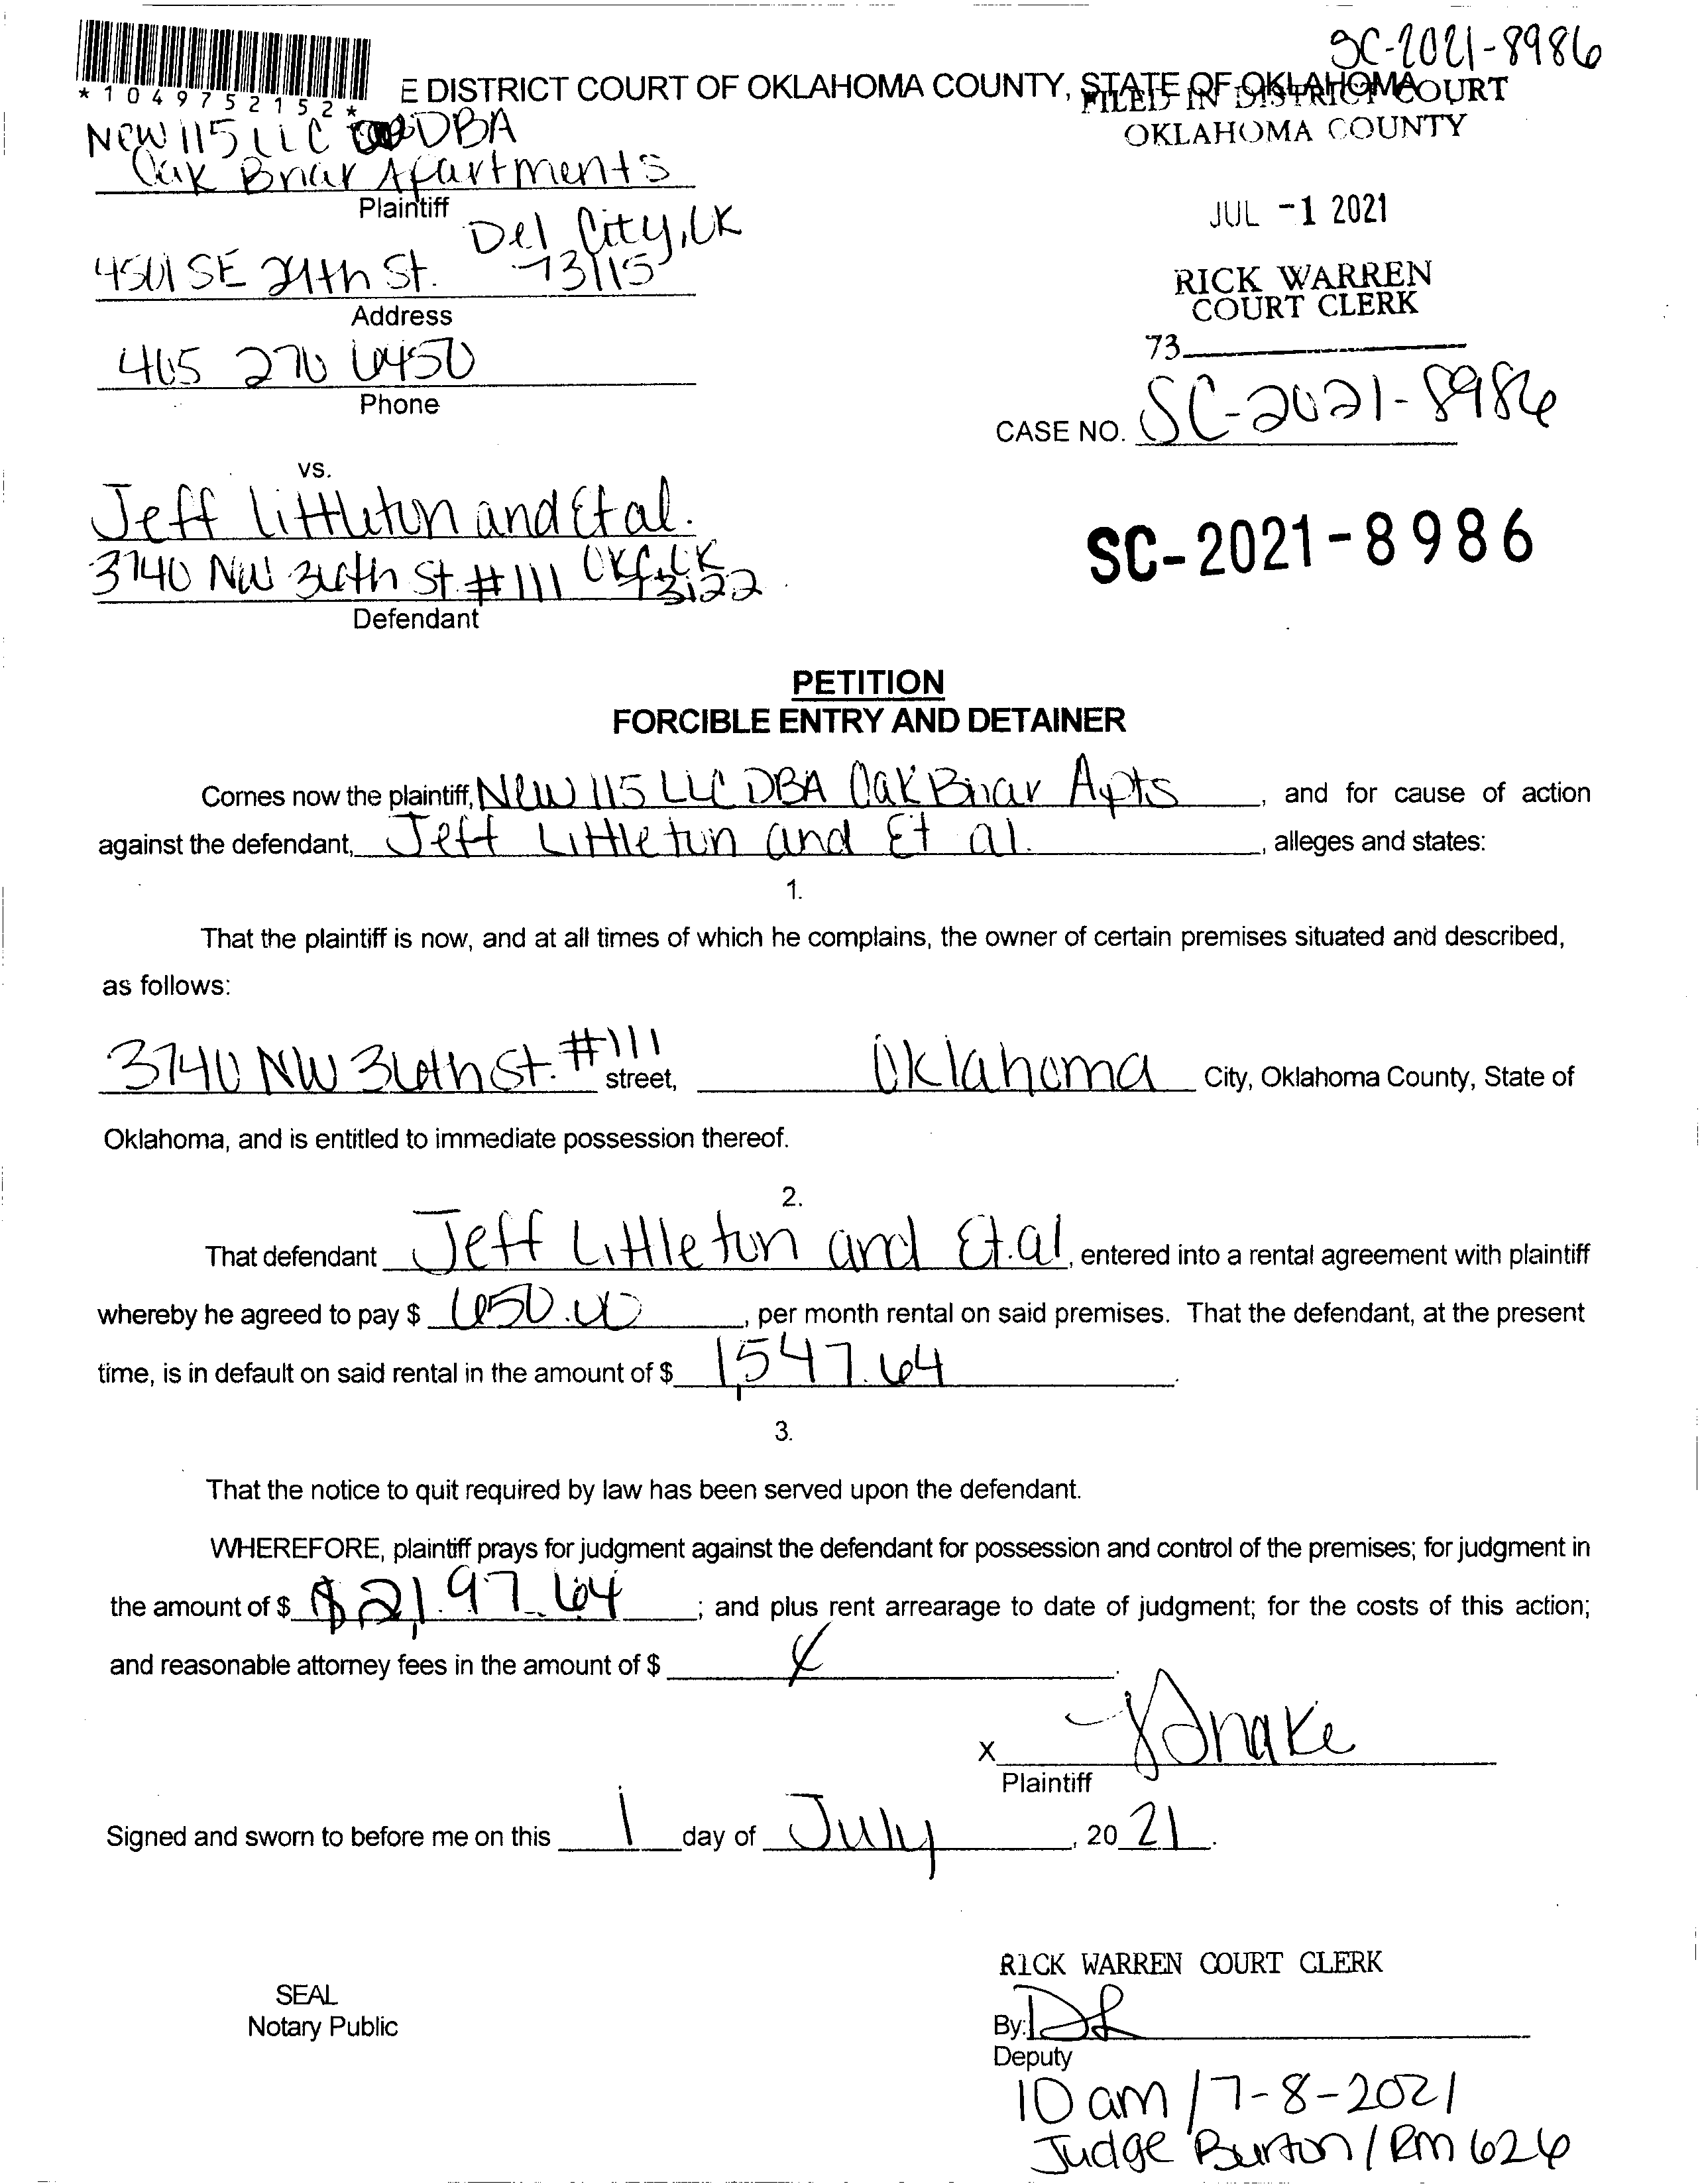 SC-2021-8986
*1049752152*
E DISTRICT COURT OF OKLAHOMA COUNTY, STATE OF OKLAHOMA
FILED IN DISTRICT COURT
OKLAHOMA COUNTY
New 115 LLC DBA
Oak Briar Apartments
Plaintiff
JUL -1 2021
4501 SE 24th St. Del City, OK
73115
Address
RICK WARREN
COURT CLERK
73
405 270 6450
Phone
CASE NO. SC-2021-8986
vs.
Jeff Littleton and Et al.
3740 NW 36th St. #111 OKC, OK
73122
Defendant
SC-2021-8986
PETITION
FORCIBLE ENTRY AND DETAINER
Comes now the plaintiff, New 115 LLC DBA Oak Briar Apts, and for cause of action
against the defendant, Jeff Littleton and Et al., alleges and states:
1.
That the plaintiff is now, and at all times of which he complains, the owner of certain premises situated and described,
as follows:
3740 NW 36th St. #111 street, Oklahoma City, Oklahoma County, State of
Oklahoma, and is entitled to immediate possession thereof.
2.
That defendant Jeff Littleton and Et.al, entered into a rental agreement with plaintiff
whereby he agreed to pay $ 650.00, per month rental on said premises. That the defendant, at the present
time, is in default on said rental in the amount of $ 1,547.64.
3.
That the notice to quit required by law has been served upon the defendant.
WHEREFORE, plaintiff prays for judgment against the defendant for possession and control of the premises; for judgment in
the amount of $ $2,197.64; and plus rent arrearage to date of judgment; for the costs of this action;
and reasonable attorney fees in the amount of $
x
Plaintiff
Signed and sworn to before me on this 1 day of July, 20 21.
RICK WARREN COURT CLERK
SEAL
Notary Public
By:
Deputy
10 am / 7-8-2021
Judge Burton / Rm 626